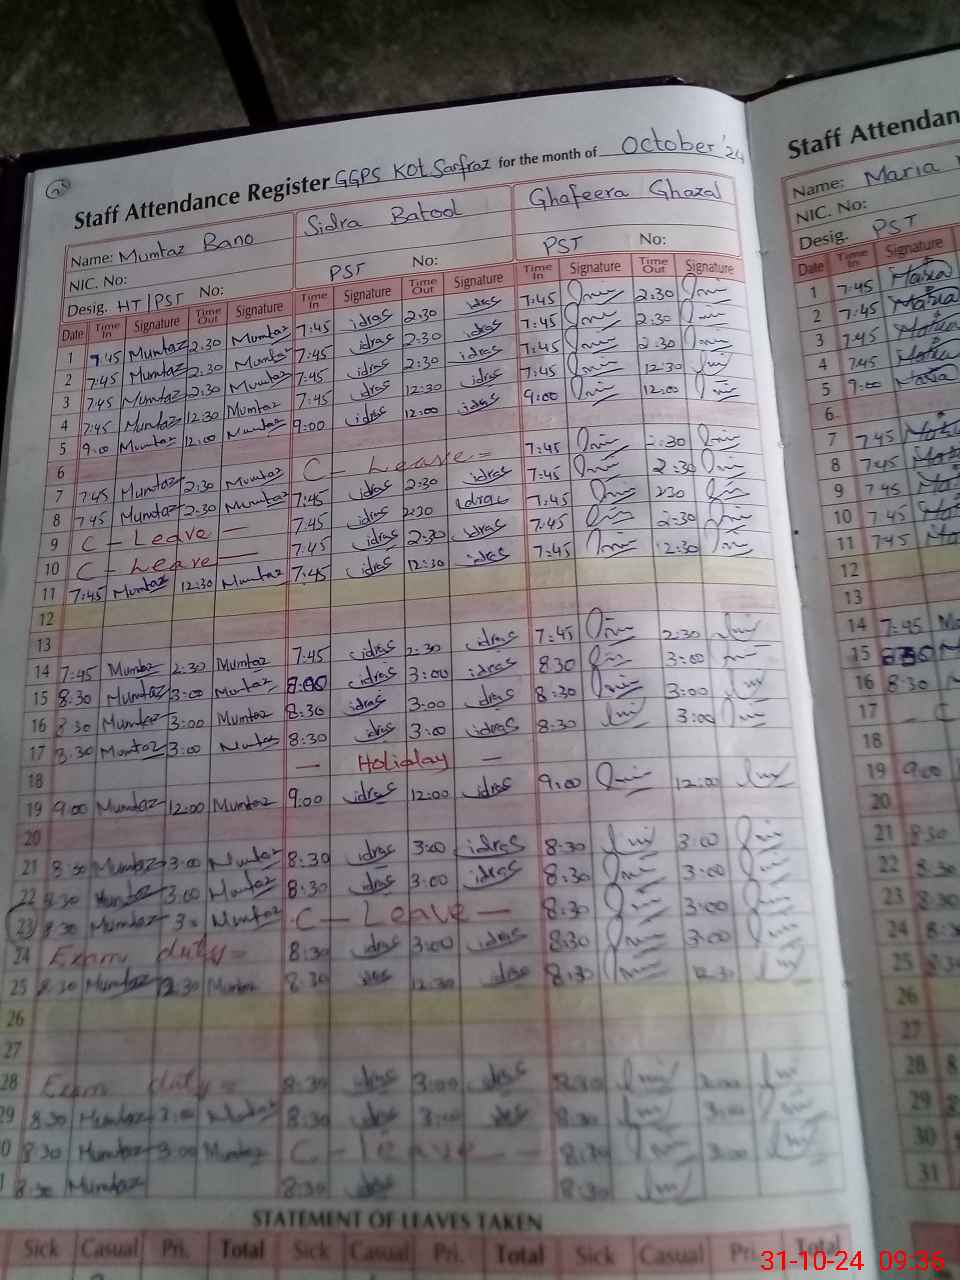 Staff Attendance Register GGPS Kot Sarfraz for the month of October '24
Name: Mumtaz Bano Sidra Batool Ghafeera Ghazal
NIC. No:
Desig. HT/PST No: PST No: PST No:
Date Time In Signature Time Out Signature Time In Signature Time Out Signature Time In Signature Time Out Signature
1 7:45 Mumtaz 2:30 Mumtaz 7:45 idras 2:30 idras 7:45 2:30
2 7:45 Mumtaz 2:30 Mumtaz 7:45 idras 2:30 idras 7:45 2:30
3 7:45 Mumtaz 2:30 Mumtaz 7:45 idras 2:30 idras 7:45 2:30
4 7:45 Mumtaz 12:30 Mumtaz 7:45 idras 12:30 idras 7:45 12:30
5 9:00 Mumtaz 12:00 Mumtaz 9:00 idras 12:00 idras 9:00 12:00
6
7 7:45 Mumtaz 2:30 Mumtaz C - Leave - 7:45 2:30
8 7:45 Mumtaz 2:30 Mumtaz 7:45 idras 2:30 idras 7:45 2:30
9 C - Leave - 7:45 idras 2:30 idras 7:45 2:30
10 C - Leave - 7:45 idras 2:30 idras 7:45 2:30
11 7:45 Mumtaz 12:30 Mumtaz 7:45 idras 12:30 idras 7:45 12:30
12
13
14 7:45 Mumtaz 2:30 Mumtaz 7:45 idras 2:30 idras 7:45 2:30
15 8:30 Mumtaz 3:00 Mumtaz idras 3:00 idras 8:30 3:00
16 8:30 Mumtaz 3:00 Mumtaz 8:30 idras 3:00 idras 8:30 3:00
17 8:30 Mumtaz 3:00 Mumtaz 8:30 idras 3:00 idras 8:30 3:00
18 — Holiday —
19 9:00 Mumtaz 12:00 Mumtaz 9:00 idras 12:00 idras 9:00 12:00
20
21 8:30 Mumtaz 3:00 Mumtaz 8:30 idras 3:00 idras 8:30 3:00
22 8:30 Mumtaz 3:00 Mumtaz 8:30 idras 3:00 idras 8:30 3:00
23 8:30 Mumtaz 3: Mumtaz C - Leave - 8:30 3:00
24 Exam duty = 8:30 idras 3:00 idras 8:30 3:00
25 8:30 Mumtaz 12:30 Mumtaz 8:30 12:30 8:30 12:30
26
27
28 Exam duty = 8:30 idras 3:00 idras 8:30 3:00
29 8:30 Mumtaz 3:00 Mumtaz 8:30 3:00 8:30 3:00
0 8:30 Mumtaz 3:00 Mumtaz C - Leave - - 8:30 3:00
1 8:30 Mumtaz 8:30 8:30
STATEMENT OF LEAVES TAKEN
Sick Casual Pri. Total Sick Casual Pri. Total Sick Casual Pri. Total
Staff Attendan
Name: Maria
NIC. No:
Desig. PST
Date Time In Signature
1 7:45 Maria
2 7:45 Maria
3 7:45 Maria
4 7:45 Maria
5 9:00 Maria
6
7 7:45
8 7:45
9 7:45
10 7:45
11 7:45
12
13
14 7:45
15
16 8:30
17 - C
18
19 9:00
20
21 8:30
22 8:30
23 8:30
24 8:3
25 8:3
26
27
28 8
29 8
30 8
31
31-10-24 09:36